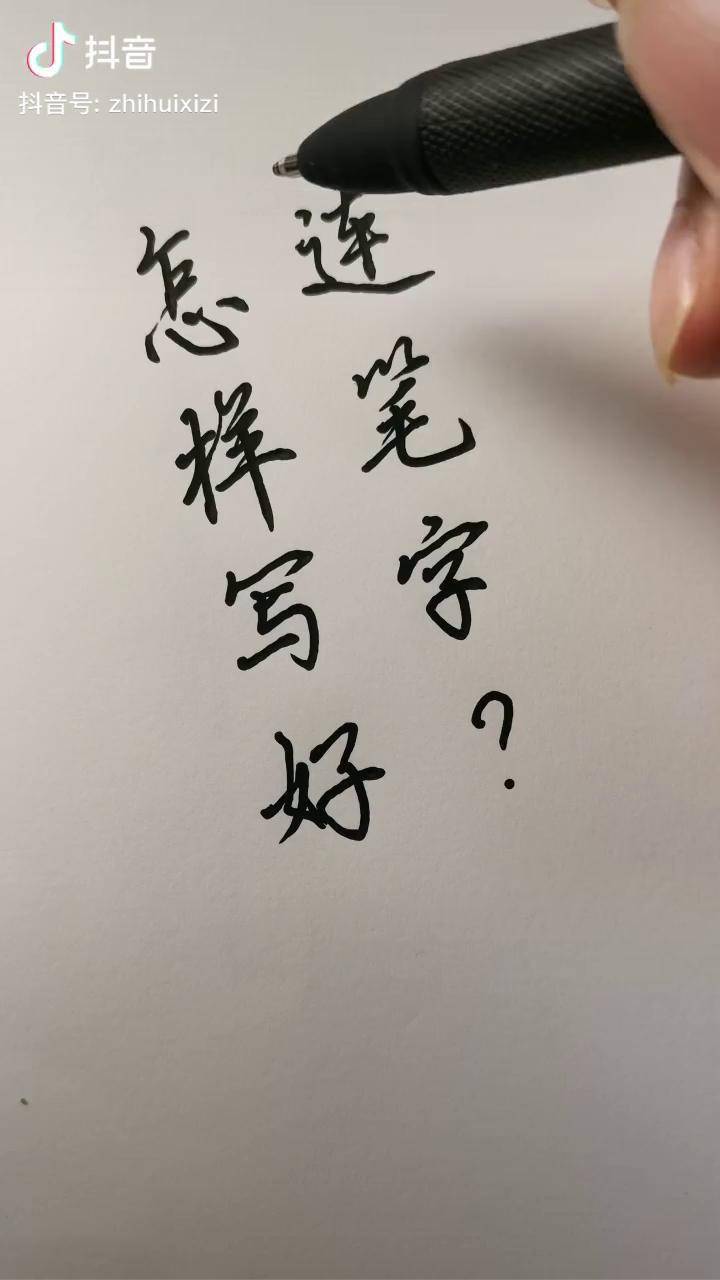 抖音
抖音号: zhihuixizi
怎样写好
连笔字?